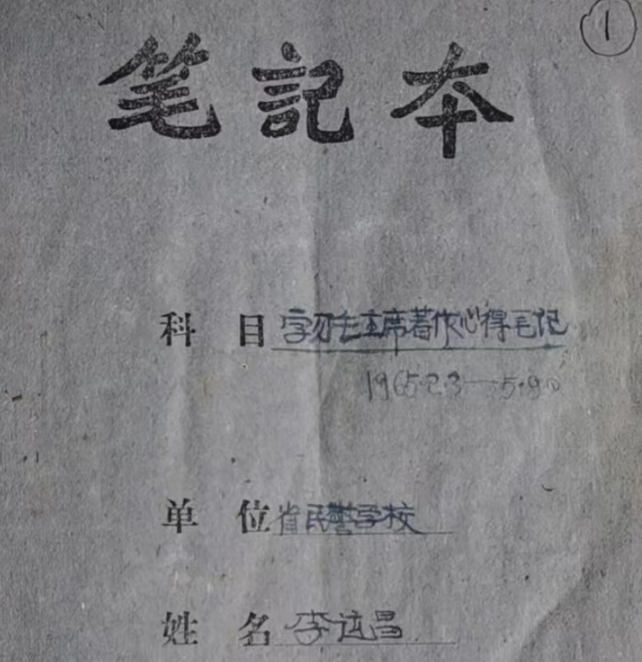 ①
笔記本
科 目 学习毛主席著作心得笔记
1965.2.3—5.9
单 位 省民警学校
姓 名 李达昌